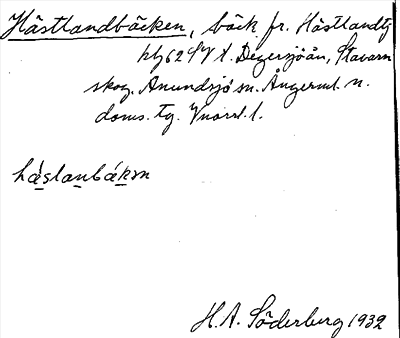 Hästlandbäcken, bäck fr. Hästlandtj
kbl 62 SV t. Degersjöån, Stavarn
skog. Anundsjö sn. Ångerml. n.
doms. tg. Vnorrl. l.
håslanbåkɜn
H.A. Söderberg 1932